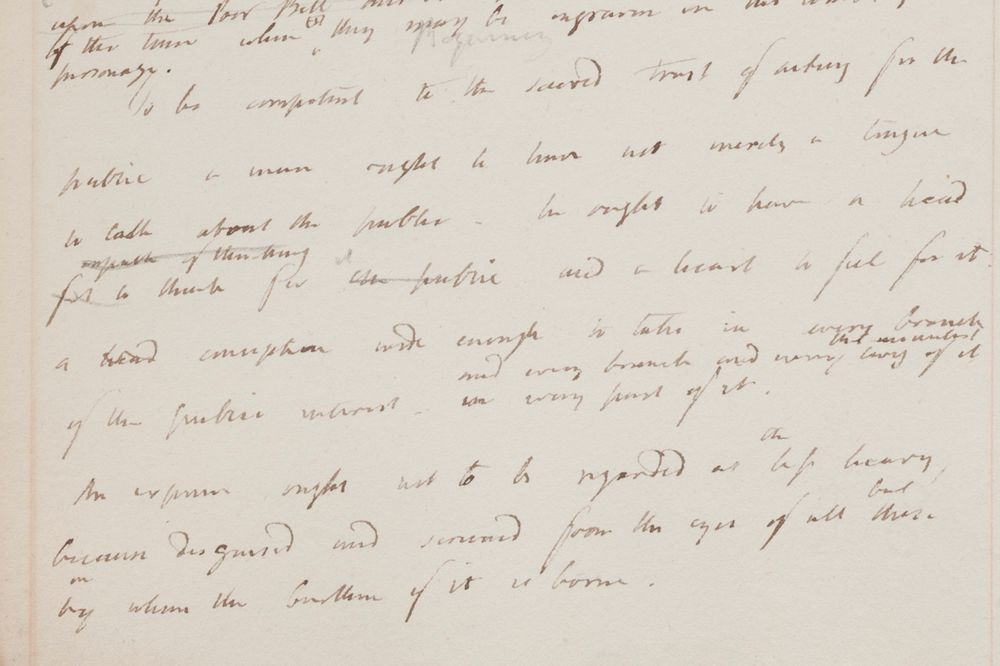 upon the Poor Bill
of the time when they may be engraven in the
personage.
Beginning
To be competent to the sacred trust of acting for the
public a man ought to have not merely a tongue
to talk about the public - he ought to have a head
of thinking
to think for the public and a heart to feel for it.
a head conception wide enough to take in every branch
the minutest
and every branch and every twig of it
of the public interest - in every part of it.
the
An expence ought not to be regarded as less heavy,
but
because disguised and screened from the eyes of all those
on
by whom the burthen of it is borne.